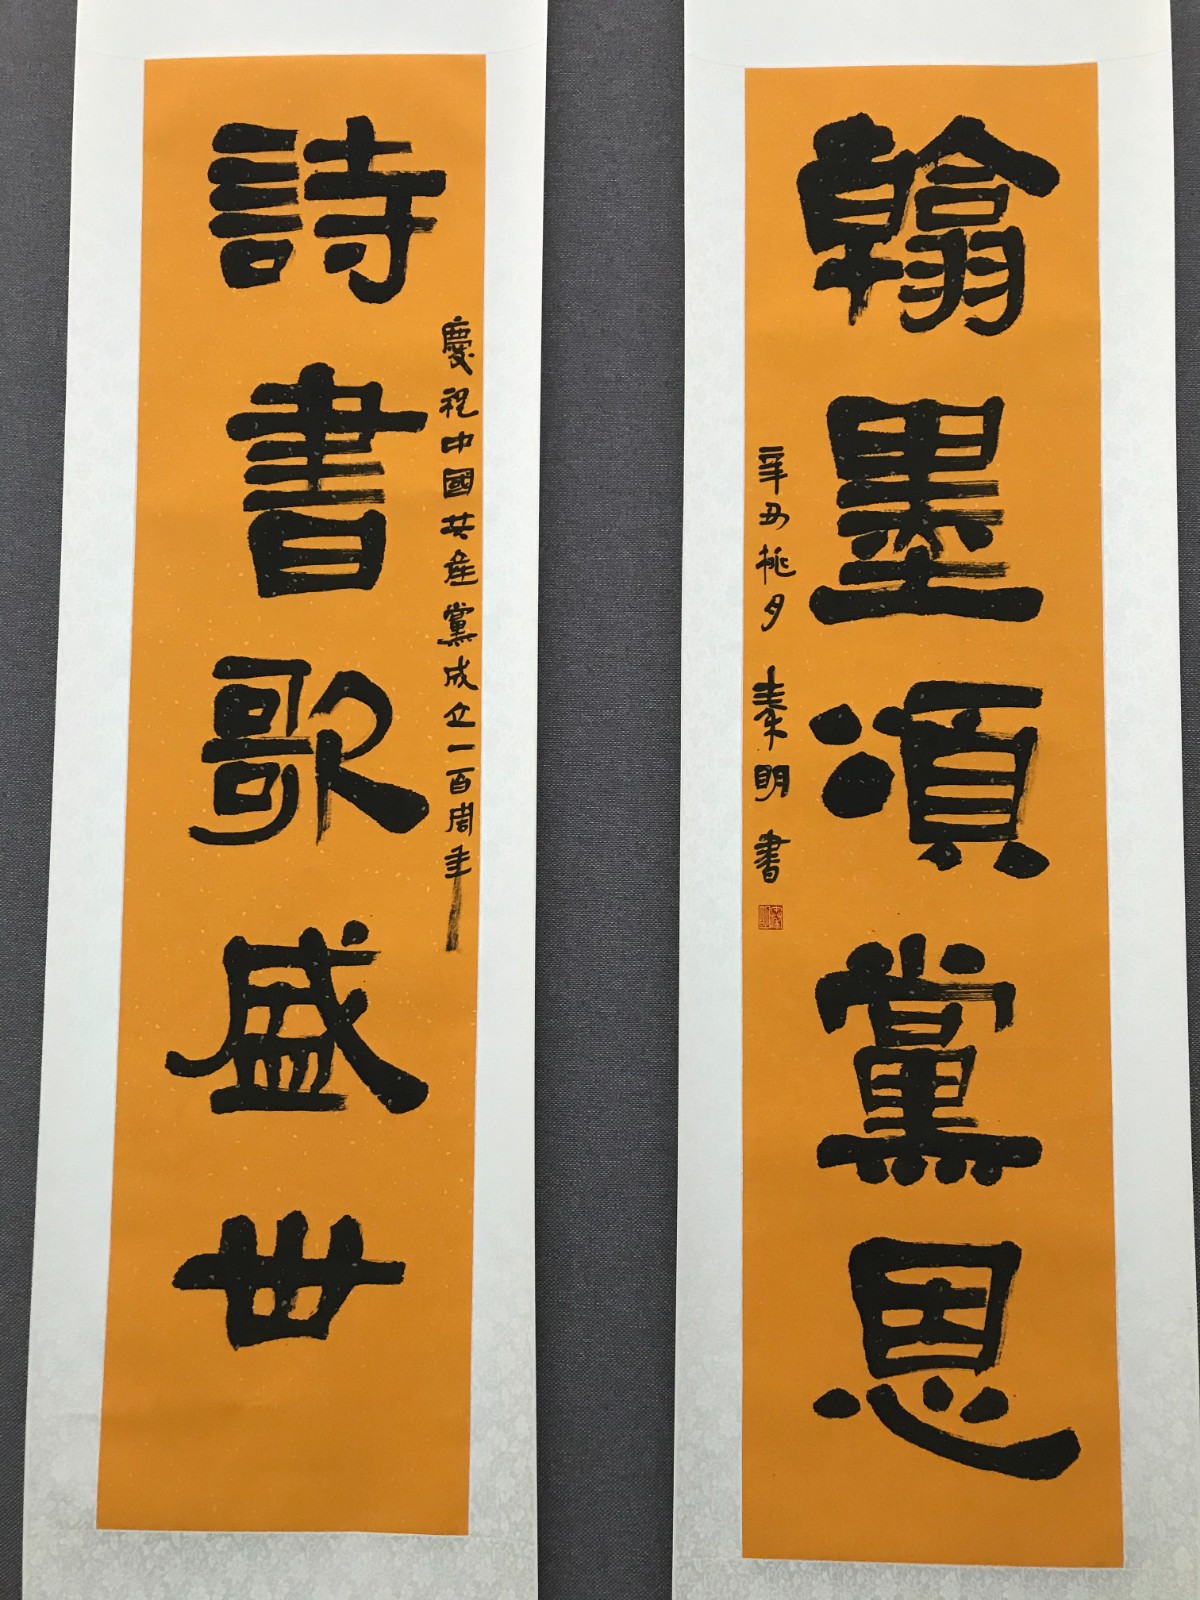 翰墨頌黨恩
辛丑桃月 秦明 書
慶祝中國共産黨成立一百周年
詩書歌盛世